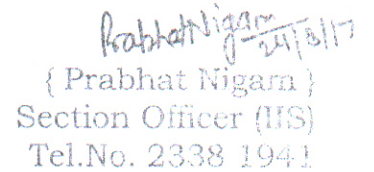 Prabhat Nigam
24/8/17
{ Prabhat Nigam }
Section Officer (IIS)
Tel.No. 2338 1941